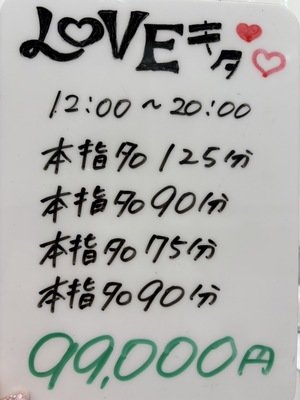 LOVEキタ
12:00～20:00
本指名125分
本指名90分
本指名75分
本指名90分
99,000円